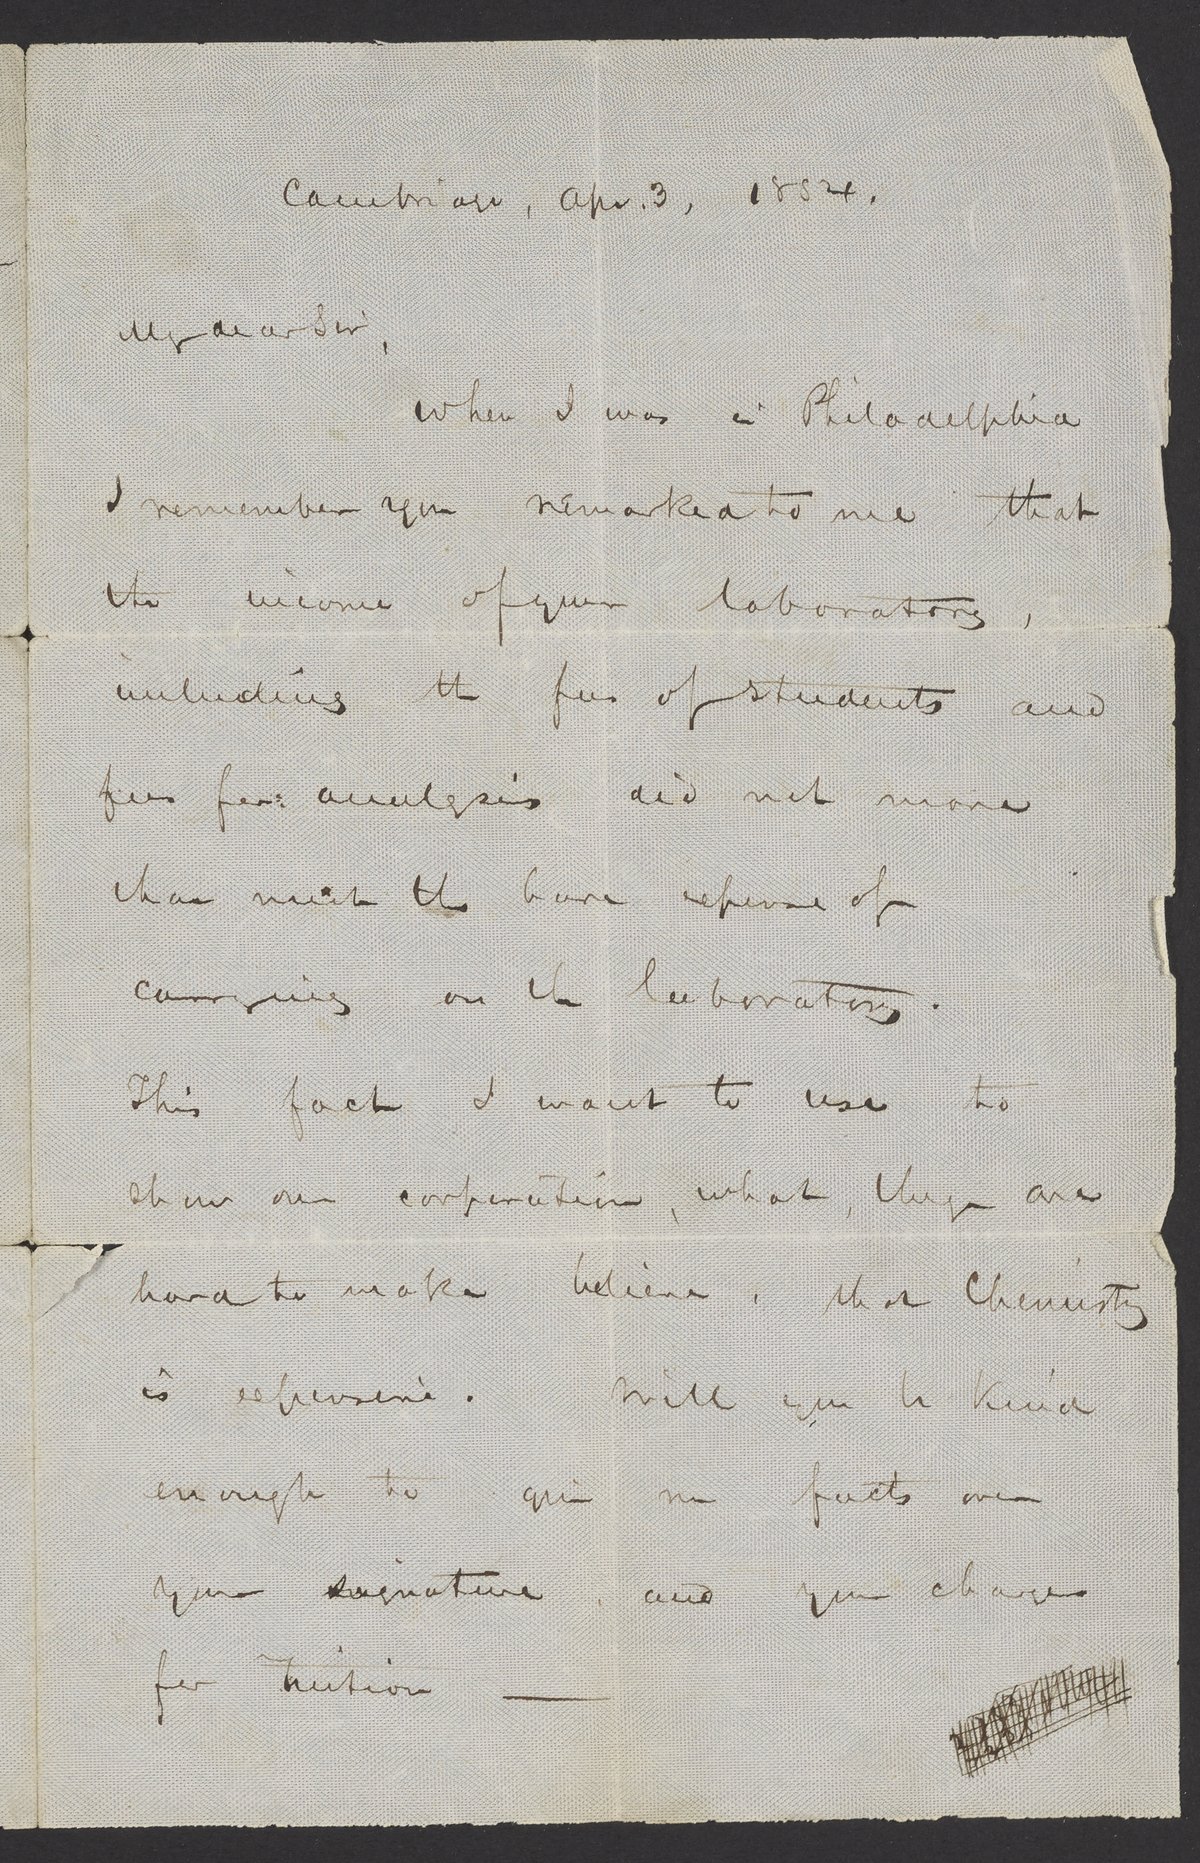 Cambridge, Apr. 3, 1854.
My dear Sir,
When I was in Philadelphia
I remember you remarked to me that
the income of your laboratory,
including the fees of students and
fees for analysis did not more
than meet the bare expense of
carrying on the laboratory.
This fact I want to use to
show our corporation, what, they are
hard to make believe, that Chemistry
is expensive. Will you be kind
enough to give me facts over
your signature, and your charges
for Tuition —